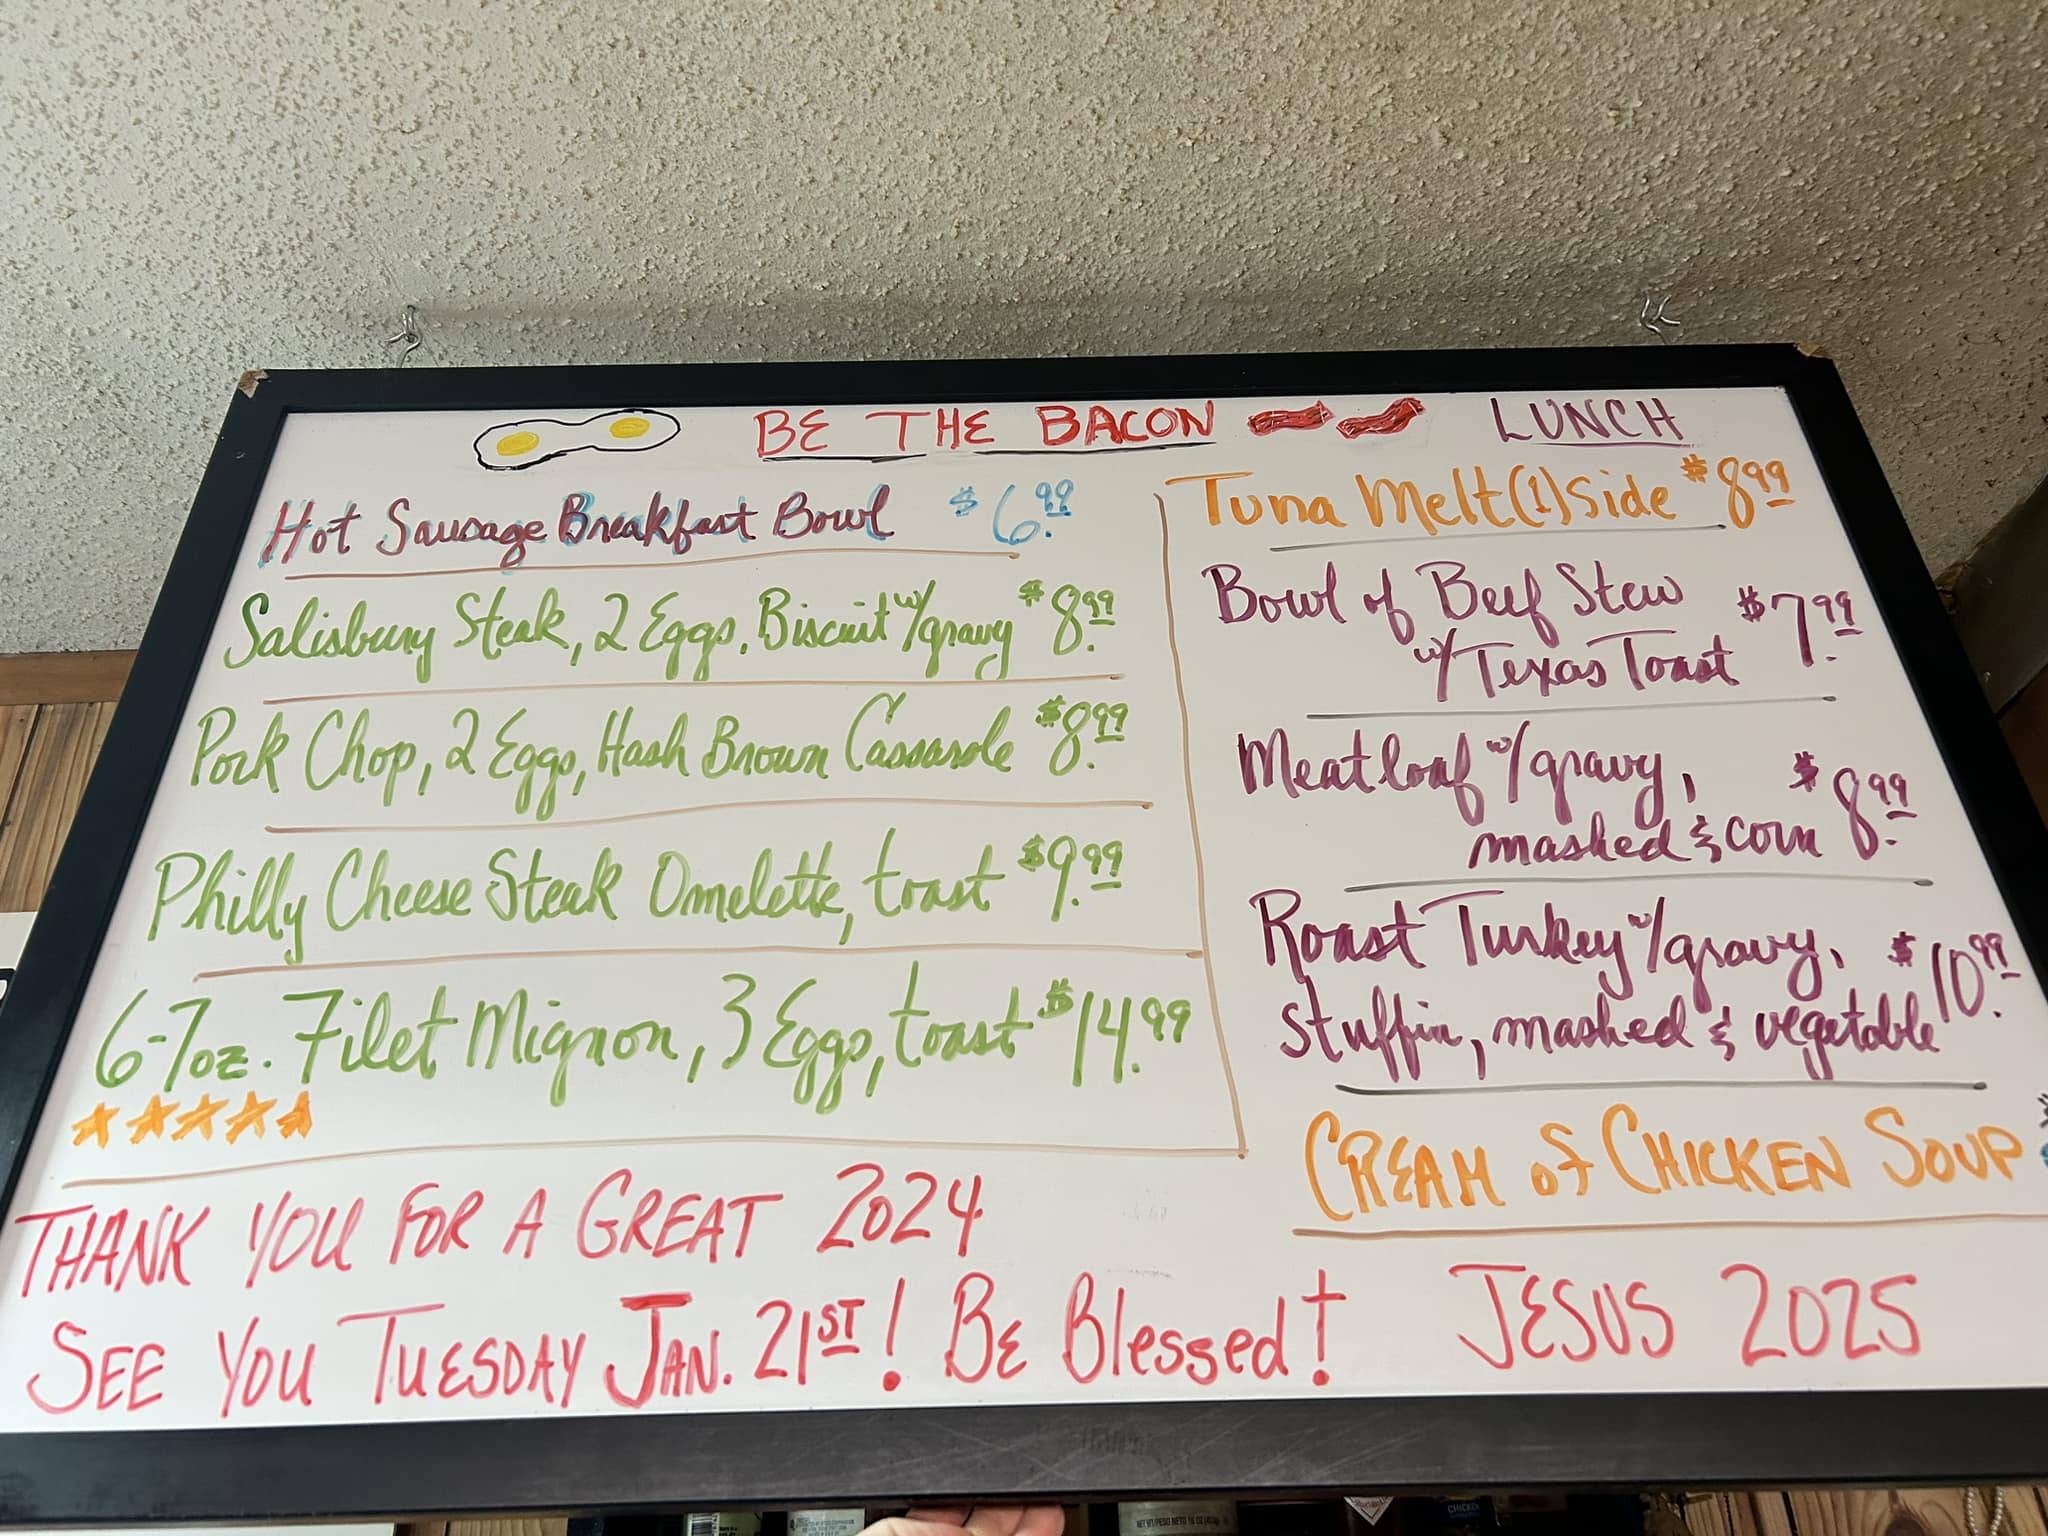 BE THE BACON
Hot Sausage Breakfast Bowl $6.99
Salisbury Steak, 2 Eggs, Biscuit w/gravy $8.99
Pork Chop, 2 Eggs, Hash Brown Cassarole $8.99
Philly Cheese Steak Omelette, toast $9.99
6-7oz. Filet Mignon, 3 Eggs, toast $14.99
LUNCH
Tuna Melt (1) Side $8.99
Bowl of Beef Stew
w/Texas Toast $7.99
Meatloaf w/gravy,
mashed & corn $8.99
Roast Turkey w/gravy,
stuffin, mashed & vegetable $10.99
CREAM of CHICKEN SOUP
THANK YOU FOR A GREAT 2024
SEE YOU TUESDAY JAN. 21ST! BE Blessed!
JESUS 2025
NET WT/PESO NETO 16 OZ
CHICKEN